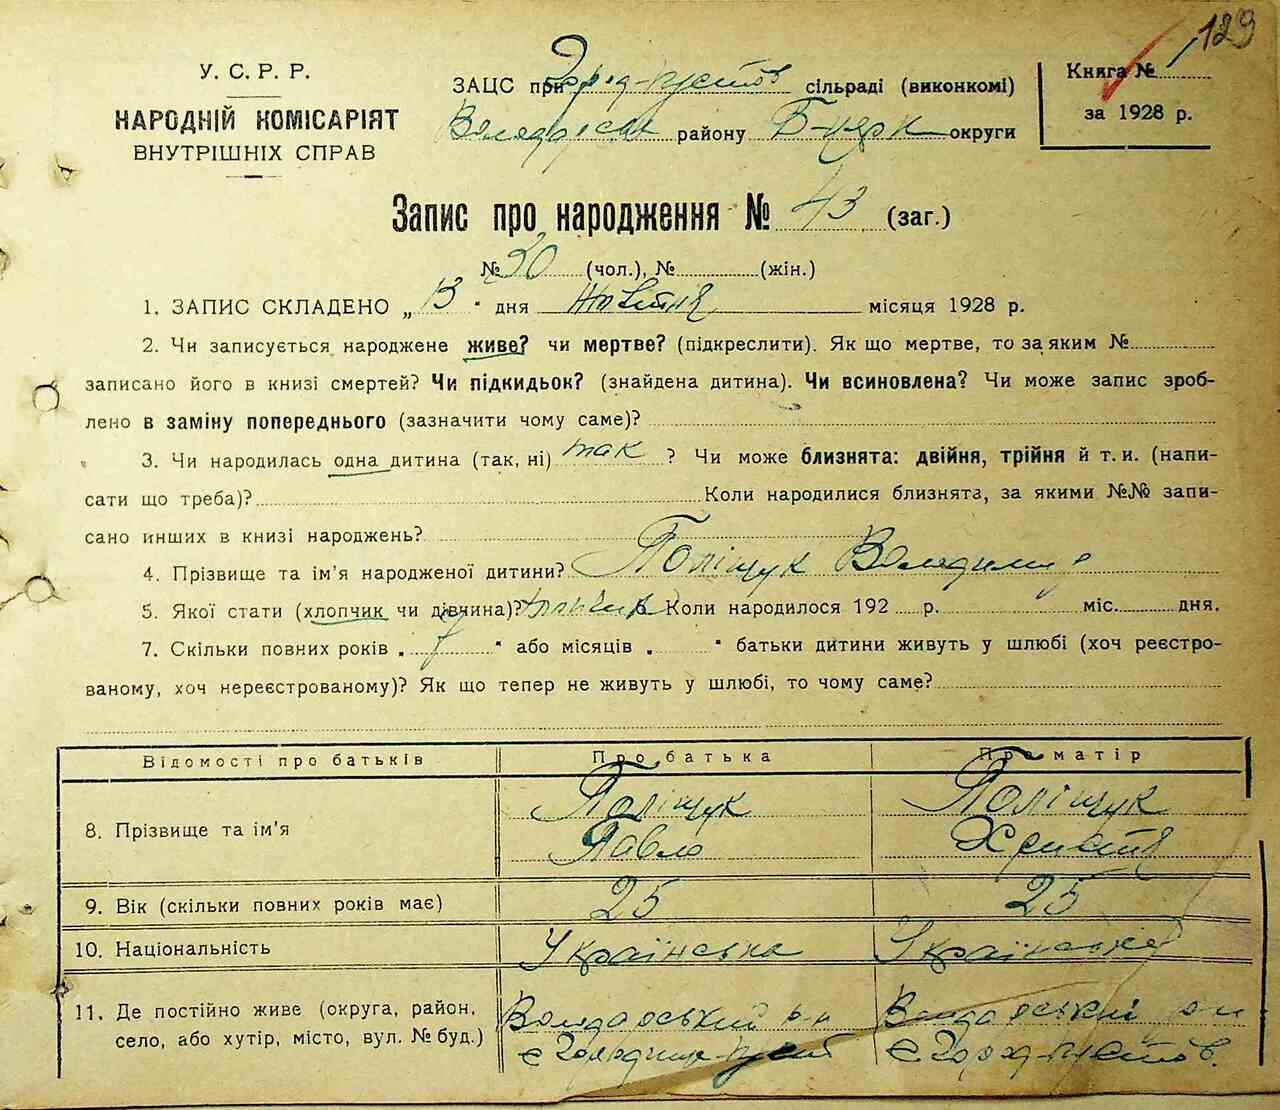 129
У. С. Р. Р.
НАРОДНІЙ КОМІСАРІЯТ
ВНУТРІШНІХ СПРАВ
ЗАЦС при Город-пустов сільраді (виконкомі)
Володарськ району Б-церк округи
Книга №
за 1928 р.
Запис про народження № 43 (заг.)
№ 30 (чол.), № (жін.)
1. ЗАПИС СКЛАДЕНО „ 13 " дня Жовтня місяця 1928 р.
2. Чи записується народжене живе? чи мертве? (підкреслити). Як що мертве, то за яким №
записано його в книзі смертей? Чи підкидьок? (знайдена дитина). Чи всиновлена? Чи може запис зроб-
лено в заміну попереднього (зазначити чому саме)?
3. Чи народилась одна дитина (так, ні) так ? Чи може близнята: двійня, трійня й т. и. (напи-
сати що треба)? Коли народилися близнята, за якими №№ запи-
сано инших в книзі народжень?
4. Прізвище та ім'я народженої дитини? Поліщук Володимир
5. Якої стати (хлопчик чи дівчина)? Коли народилося 192 р. міс. дня.
7. Скільки повних років „ " або місяців „ " батьки дитини живуть у шлюбі (хоч реєстро-
ваному, хоч нереєстрованому)? Як що тепер не живуть у шлюбі, то чому саме?
Відомості про батьків Про батька Про матір
8. Прізвище та ім'я Поліщук Павло Поліщук Христя
9. Вік (скільки повних років має) 25 25
10. Національність Українська Українська
11. Де постійно живе (округа, район, Володарський р-н Володарський р-н
село, або хутір, місто, вул. № буд.) с. Городище-пуст с. Город-пустов.